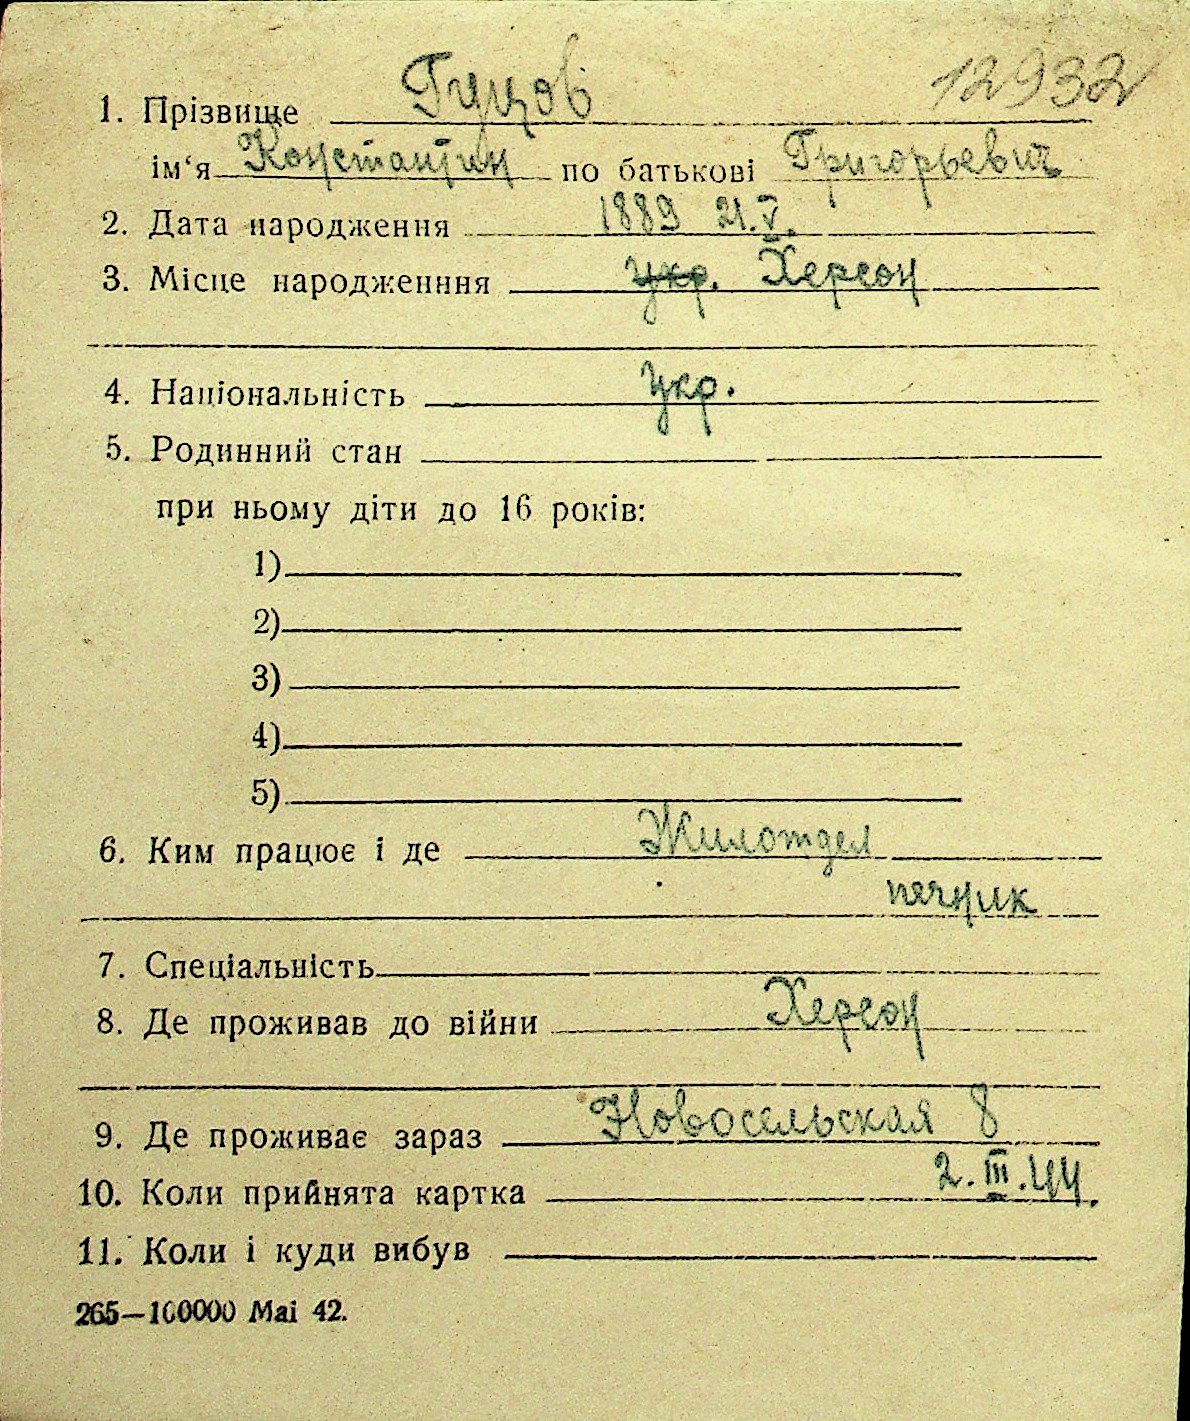 12932
1. Прізвище Гуцов
ім‘я Константин по батькові Григорьевич
2. Дата народження 1889 21.V.
3. Місце народженння укр. Херсон
4. Національність укр.
5. Родинний стан
при ньому діти до 16 років:
1)
2)
3)
4)
5)
6. Ким працює і де Жилотдел
печник
7. Спеціальність
8. Де проживав до війни Херсон
9. Де проживає зараз Новосельская 8
10. Коли прийнята картка 2.III.44.
11. Коли і куди вибув
265—100000 Маі 42.